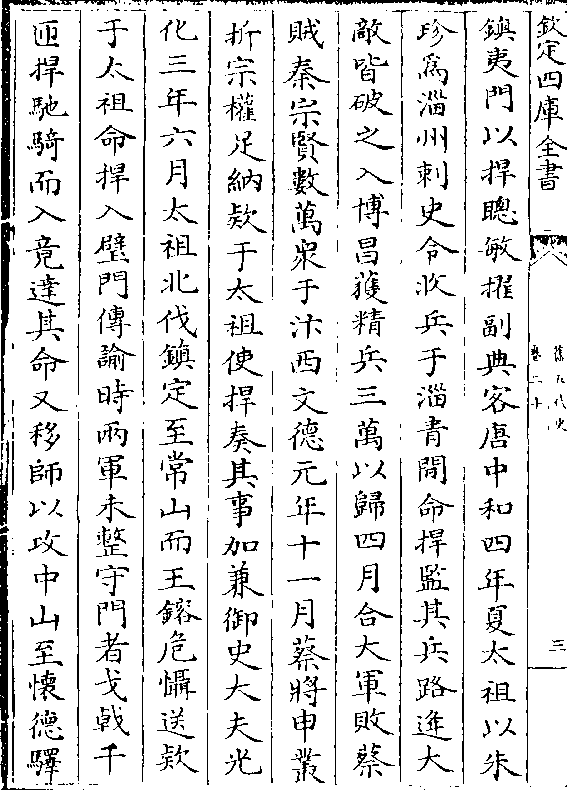 欽定四庫全書
舊五代史
卷二十
三
鎮夷門以捍聰敏擢副典客唐中和四年夏太祖以朱
珍為淄州刺史令收兵于淄青間命捍監其兵路逢大
敵皆破之入博昌獲精兵三萬以歸四月合大軍敗蔡
賊秦宗賢數萬衆于汴西文德元年十一月蔡將申叢
折宗權足納欵于太祖使捍奏其事加兼御史大夫光
化三年六月太祖北伐鎮定至常山而王鎔危懾送欵
于太祖命捍入壁門傳諭時兩軍未整守門者戈戟千
匝捍馳騎而入竟達其命又移師以攻中山至懷德驛